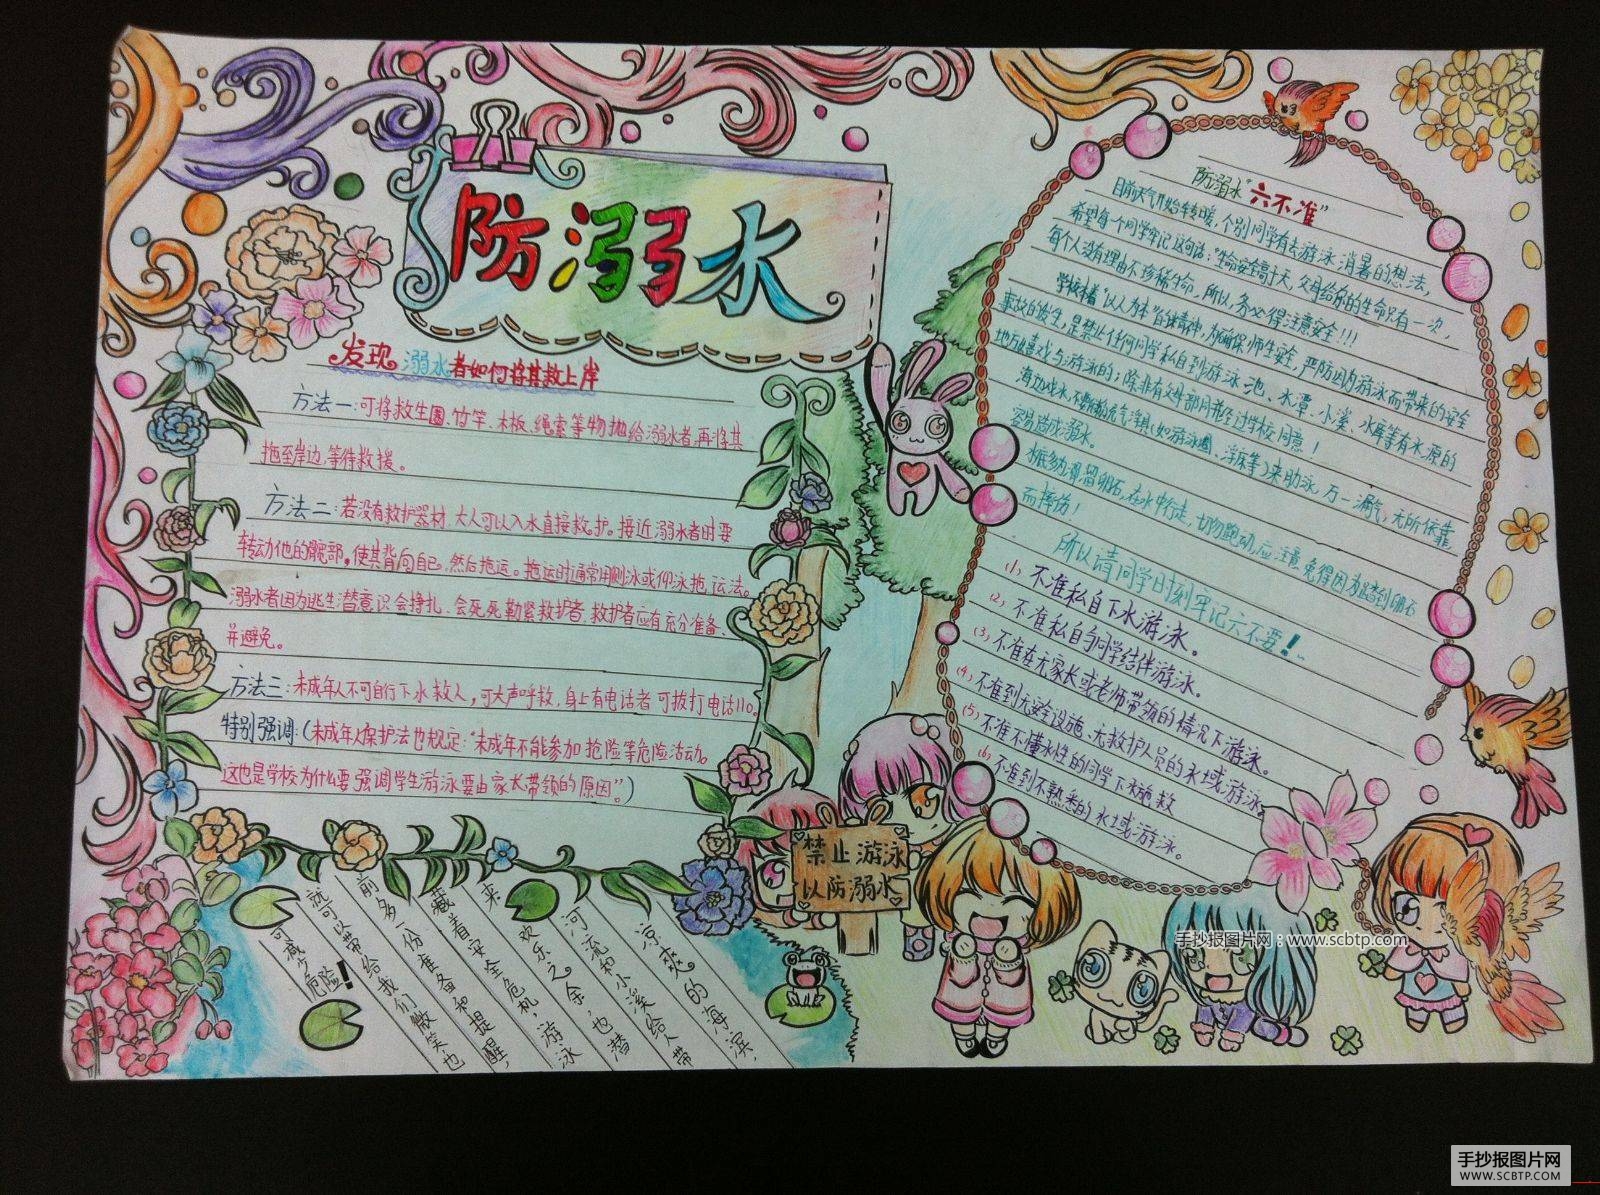 防溺水
发现溺水者如何将其救上岸
方法一:可将救生圈、竹竿、木板、绳索等物抛给溺水者,再将其
拖至岸边,等待救援。
方法二:若没有救护器材,大人可以入水直接救护。接近溺水者时要
转动他的髋部,使其背向自己,然后拖运。拖运时通常用侧泳或仰泳拖运法。
溺水者因为逃生潜意识会挣扎,会死死勒紧救护者,救护者应有充分准备、
并避免。
方法三:未成年人不可自行下水救人,可大声呼救,身上有电话者可拨打电话110。
特别强调:(未成年人保护法也规定:“未成年不能参加抢险等危险活动。
这也是学校为什么要强调学生游泳要由家长带领的原因”。)
凉爽的海滨,
河流和小溪给人带
来欢乐之余,也潜
藏着安全危机,游泳
前多一份准备和提醒,
就可以带给我们微笑,也
可减少危险!
禁止游泳
以防溺水
防溺水“六不准”
目前天气开始转暖,个别同学有去游泳消暑的想法,
希望每个同学牢记这句话:“生命安全高于天,父母给你的生命只有一次,
每个人没有理由不珍稀生命,所以,务必得注意安全!!!
学校本着“以人为本”的精神,为确保师生安全,严防因为游泳而带来的安全
事故的发生,是禁止任何同学私自到游泳池、水潭、小溪、水库等有水源的
地方嬉戏与游泳的;除非有父母部同并经过学校同意!
海边戏水,不要充气浮具(如游泳圈、浮床等)来助泳,万一漏气,无所依靠,
容易造成溺水。
滑溜卵石,在水中行走,切勿跑动,应注意免得因为踏到卵石
而摔伤!
所以请同学时刻牢记六不要!
(1)不准私自下水游泳。
(2)不准私自与同学结伴游泳。
(3)不准在无家长或老师带领的情况下游泳。
(4)不准到无安全设施、无救护人员的水域游泳。
(5)不准不懂水性的同学下水施救
(6)不准到不熟悉的水域游泳。
手抄报图片网:www.scbtp.com
手抄报图片网
WWW.SCBTP.COM